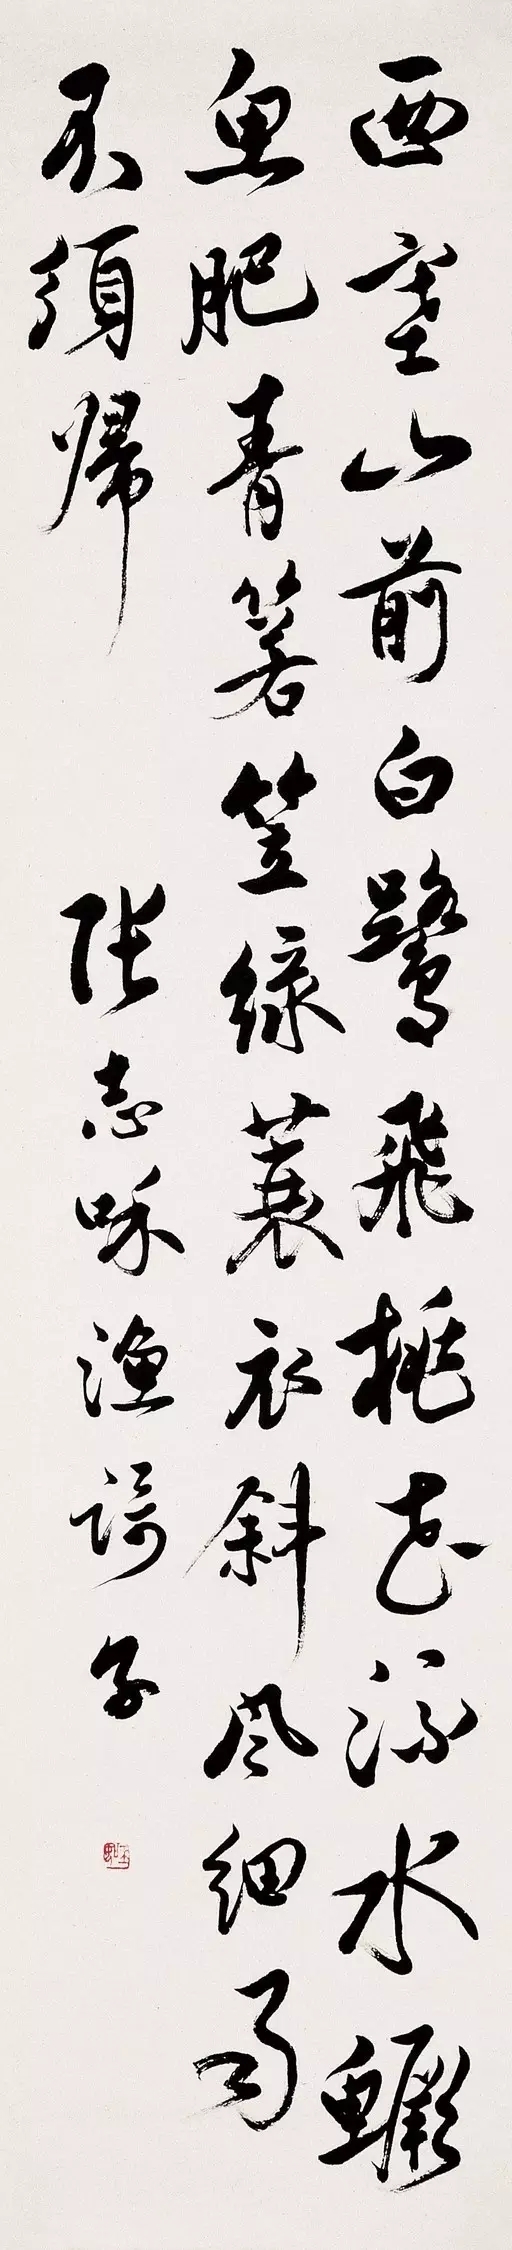 西塞山前白鹭飛桃花流水鳜
魚肥青箬笠緑蓑衣斜风细雨
不須歸
張志和漁歌子